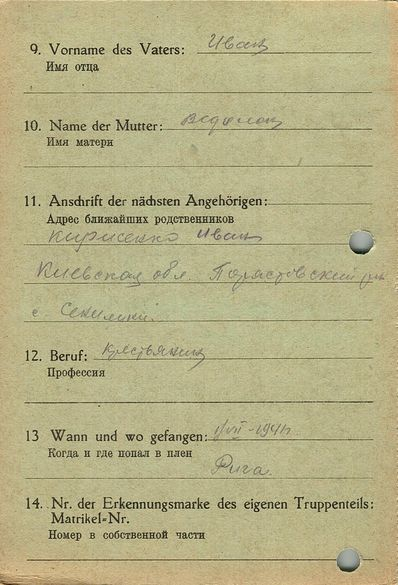 9. Vorname des Vaters: Иван
Имя отца
10. Name der Mutter:
Имя матери
11. Anschrift der nächsten Angehörigen:
Адрес ближайших родственников
Кирисенко Иван
Киевская обл.
с.
12. Beruf: крестьянин
Профессия
13 Wann und wo gefangen: 1/VII-1941
Когда и где попал в плен
Рига.
14. Nr. der Erkennungsmarke des eigenen Truppenteils:
Matrikel-Nr.
Номер в собственной части